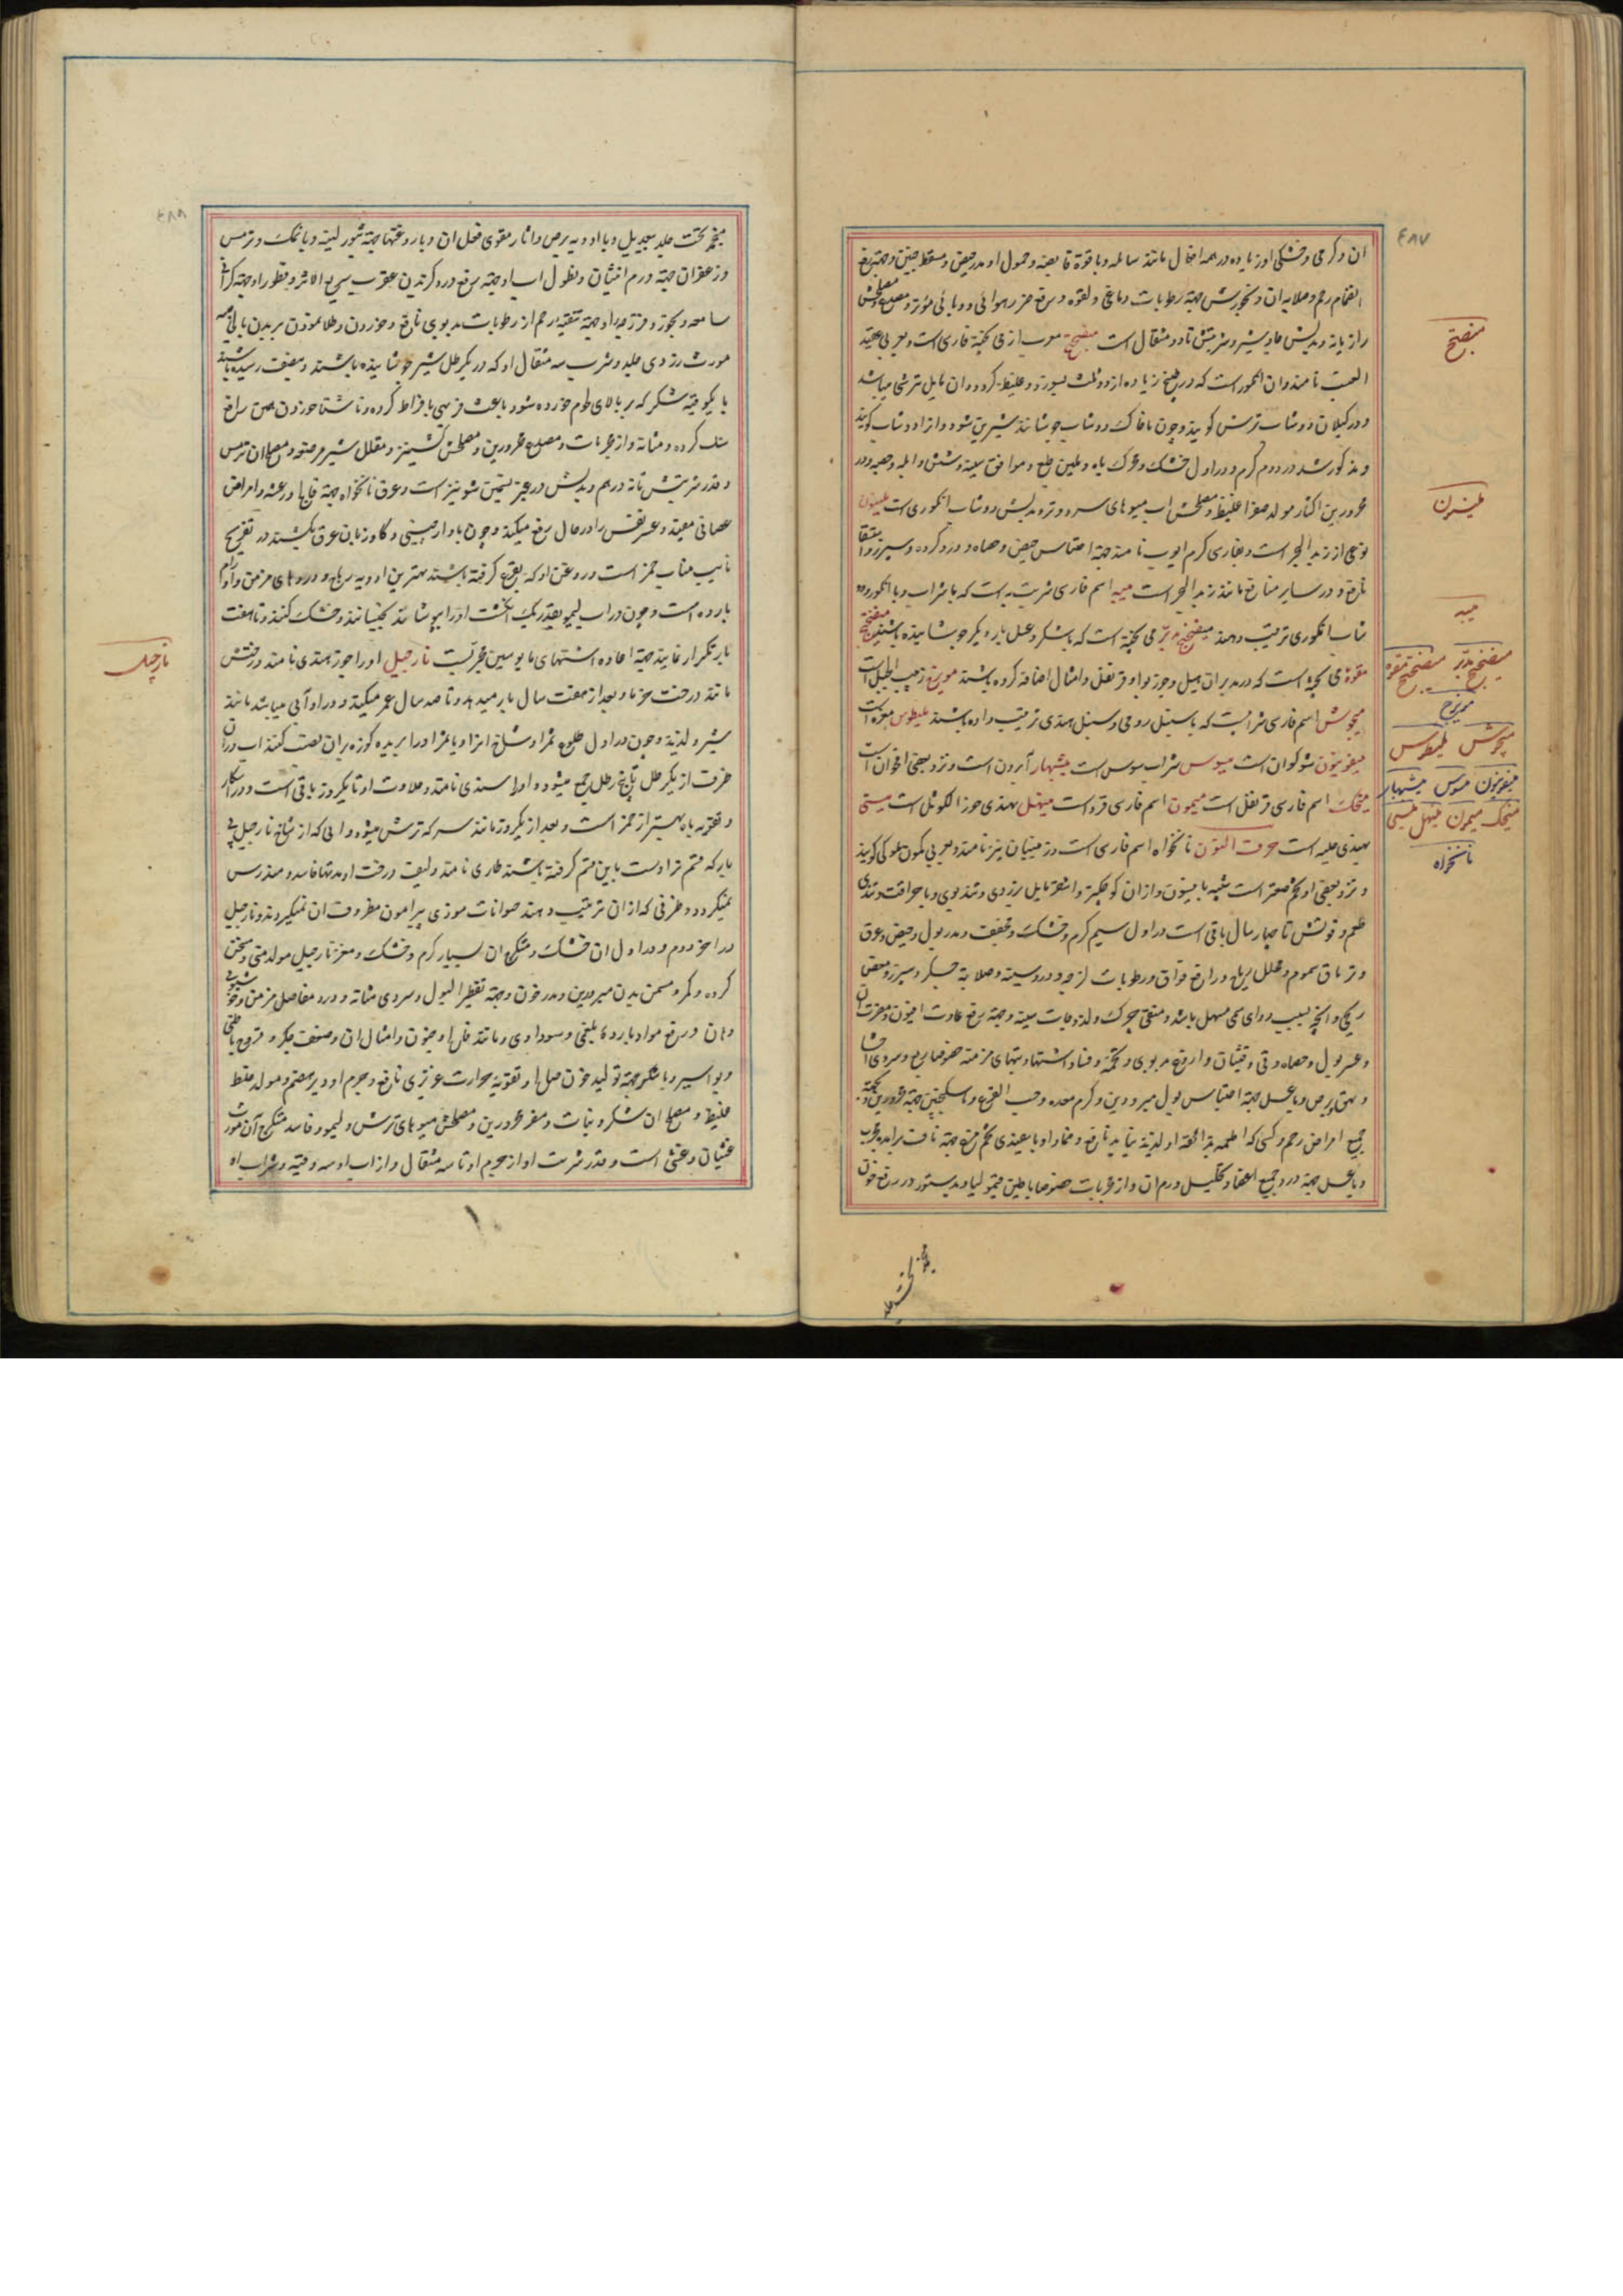 ٤٨٧
ان و گرمی و خشکی او زیاده در همه افعال مانند سالمه و با قوة قابضه و حمول او مدر حیض و مسقط جنین و جهة رفع
انضمام رحم و صلابه ان و بخورش جهة رطوبات دماغی و لقوه و رفع ضرر هوائی و وبائی مؤثر و مصلحش
رازیانه و بدلش جاوشیر و شربتش تا دو مثقال است میفختج معرب از می پخته فارسی است و بعربی عقید
العنب نامند و ان انکور است که در طبخ زیاده از دو ثلث بسوزد و غلیظ کردد و ان مایل بترشی میباشد
و در کیلان دوشاب ترش کویند و چون با خاک دوشاب جوشانند شیرین شود و انرا دوشاب کویند
و مذکور شد در دوم کرم و در اول خشک و محرک باه و ملین طبع و موافق سینه و شش و ابله و حصبه و در
محرورین اکثار مولد صفرا غلیظ و مصلحش اب میوهای سرد و تر و بدلش دوشاب انکوری است
نوعی از زبد البحر است و بفارسی کرم ایوب نامند جهة احتباس حیض و حصاه و درد کرده و سپرز و استسقا
نافع و در سایر منافع مانند زبد البحر است میبه اسم فارسی شربتیست که با شراب و با انکور و
شاب انکوری ترتیب دهند میفختج مدبر می پخته است که با شکر و عسل بار دیکر جوشانیده باشند میفختج
مفوه می پخته است که در مدبر ان هیل و جوز بوا و قرنفل و امثال اضافه کرده باشند مویزج زبیب الجبل است
میخوش اسم فارسی شرابیست که با سنبل رومی و سنبل هندی ترتیب داده باشند
میفونیون شوکران است میسوس شراب سوس است میشبهار آبرون است و نزد بعضی اقحوان است
میخک اسم فارسی قرنفل است میمون اسم فارسی قرد است میهنل بهندی جوز الکوثل است میتی
بهندی حلبه است حرف النون نانخواه اسم فارسی است و زنینیان نیز نامند و بعربی کمون ملوکی کویند
و نزد بعضی او تخم صعتر است شبیه بانیسون و از ان کوچکتر و اشقر مایل بزردی و تند بوی و با حرافت و تندی
طعم و قوتش تا چهار سال باقی است در اول سیم کرم و خشک و مجفف و مدر بول و حیض و عرق
و تریاق سموم و محلل ریاح و رافع فواق و رطوبات لزجه و درد سینه و صلابة جکر و سپرز و مغص
ریحی و انچه بسبب دوای سمی مسهل باشد و منقی چرک و لذوجات سینه و جهة رفع عادت افیون و مضرت ان
و عسر بول و حصاه و قی و غثیان و اروغ و تخمه و فساد اشتها و تبهای مزمنه خصوصا ربع و سردی احشا
و بهق و برص و با عسل جهة احتباس بول مبرودین و کرم معده و حب القرع و با سکنجبین جهة محرورین
جمیع امراض رحم و کسی که اطعمه بذائقه او لذیذ نیاید نافع و ضماد او با سفیدی تخم مرغ جهة نافت
و با عسل جهة درد جمیع اعضا و تحلیل ورم ان و از مجربات خصوصا با طین قیمولیا و بدستور در رفع خون
میفختج
میبه
میفختج مدبر میفختج مفوه
مویزج
میخوش
میفونیون میسوس میشبهار
میخک میمون میهنل میتی
نانخواه
٤٨٨
منجمد تحت جلد بیعدیل و با ادویه برص و اثار مقوی فعل ان و با روغنها جهة بثور لبنیه و با نمک و ترمس
و زعفران جهة ورم انثیان و نطول اب او جهة رفع درد کزیدن عقرب سریع الاثر و قطور او جهة کرانی
سامعه و بخور و فرزجه او جهة تنقیه رحم از رطوبات بدبوی نافع و خوردن و طلا نمودن بر بدن
مورث زردی جلد و شرب سه مثقال او که در یکرطل شیر جوشانیده باشند و بنصف رسیده باشد
با یکوقیه شکر که بر بالای طعام خورده شود باعث فربهی بافراط کرده و ناشتا خوردن
سنک کرده و مثانه و از مجربات و مصدع محرورین و مصلحش کشنیز و مقلل شیر مرضعه و مصلح ان ترمس
و قدر شربتش تا سه درهم و بدلش در غیر تسمین شونیز است و عرق نانخواه جهة فالج و رعشه و امراض
عصبانی مفید و عسر نفس را در حال رفع میکند و چون با دارچینی و کاوزبان عرق بکشند در تفریح
نایب مناب خمر است و روغن او که بقرع کرفته باشند بهترین ادویه ریاح و دردهای مزمن و اورام
بارده است و چون در اب لیمو بقدر یک انکشت او را بپوشانند بخیسانند و خشک کنند و تا هفت
بار تکرار نمایند جهة اعاده اشتهای مایوسین مجربست نارجیل او را جوز هندی نامند درختش
مانند درخت خرما و بعد از هفت سال بار میدهد و تا صد سال عمر میکند و در او آبی میباشد مانند
شیر و لذیذ و چون در اول طلوع ثمر او شاخ انرا و یا ثمر او را بریده کوزه بر ان نصب کنند اب در ان
ظرف از یکرطل تا پنج رطل جمع میشود و او را سندی نامند و حلاوت او تا یکروز باقی است و در اسکار
و تقویه باه بهتر از خمر است و بعد از یکروز مانند سرکه ترش میشود و ابی که از شاخ نارجیل بی
بار که قسم نر اوست باین قسم کرفته باشند طاری نامند و لیف درخت او مدتها فاسد و مندرس
نمیکردد و ظرفی که از ان ترتیب دهند حیوانات موذی پیرامون مظروف ان نمیکردند و نارجیل
در اخر دوم و در اول ان خشک و ان بسیار کرم و خشک و مغز نارجیل مولد منی و مسخن
کرده و کمر و مسمن بدن مبرودین و مدر خون و جهة تقطیر البول و سردی مثانه و درد مفاصل مزمن و خوشبویی
دهان و رفع مواد بارده بلغمی و سوداوی و مانند فالج و جنون و امثال ان و ضعف جکر و قروح باطنی
و بواسیر و با شکر جهة تولید خون صالح و تقویه حرارت غریزی نافع و جرم او دیر هضم و مولد خلط
غلیظ و مصلح ان شکر و نبات و مضر محرورین و مصلحش میوهای ترش و لیمو و فاسد متکرج آن مورث
غثیان و غشی است و قدر شربت او از جرم او تا سه مثقال و از اب او سه وقیه و شراب او
نارجیل